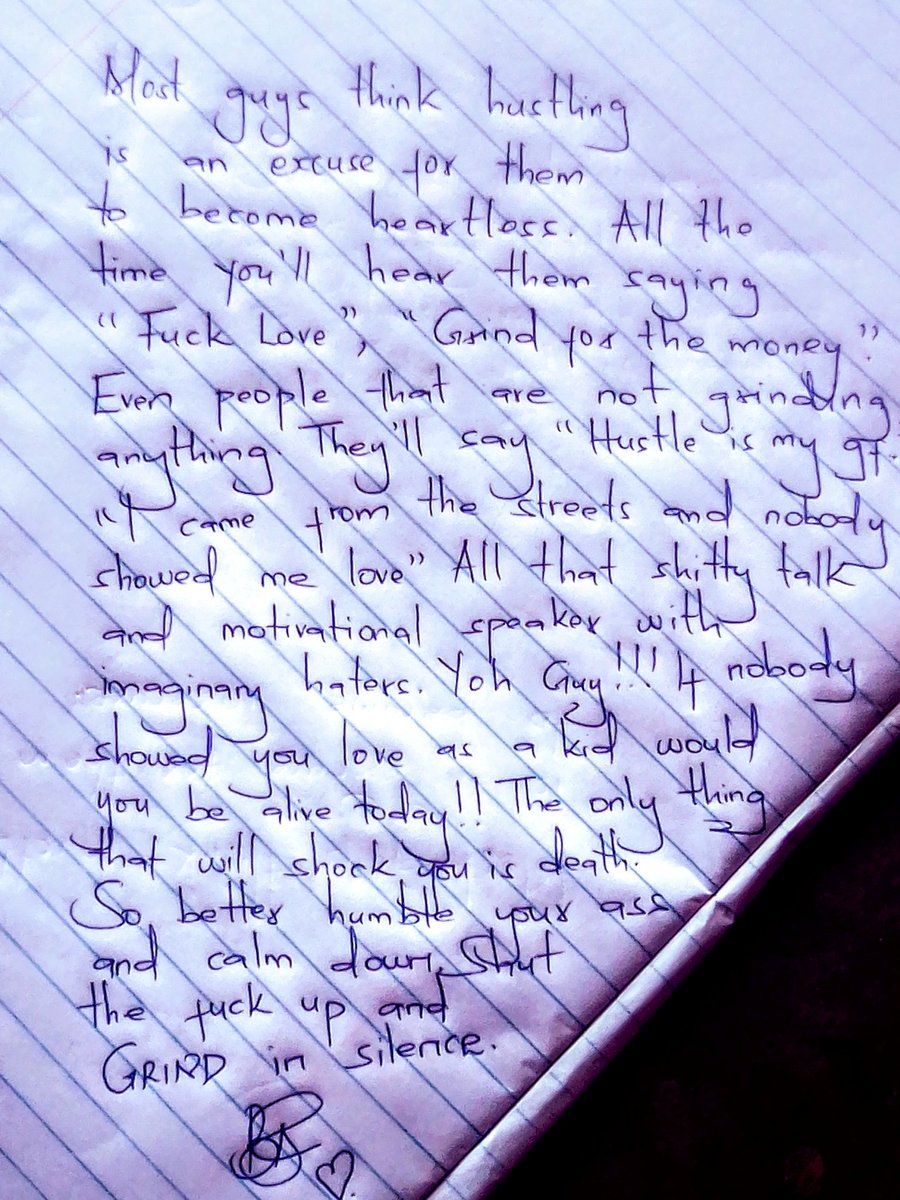 Most guys think hustling
is an excuse for them
to become heartless. All the
time you'll hear them saying
"Fuck Love", "Grind for the money"
Even people that are not grinding
anything. They'll say "Hustle is my gf.
"I came from the streets and nobody
showed me love" All that shitty talk
and motivational speaker with
imaginary haters. Yoh Guy!!! If nobody
showed you love as a kid would
you be alive today!! The only thing
that will shock you is death.
So better humble your ass
and calm down, Shut
the fuck up and
GRIND in silence.